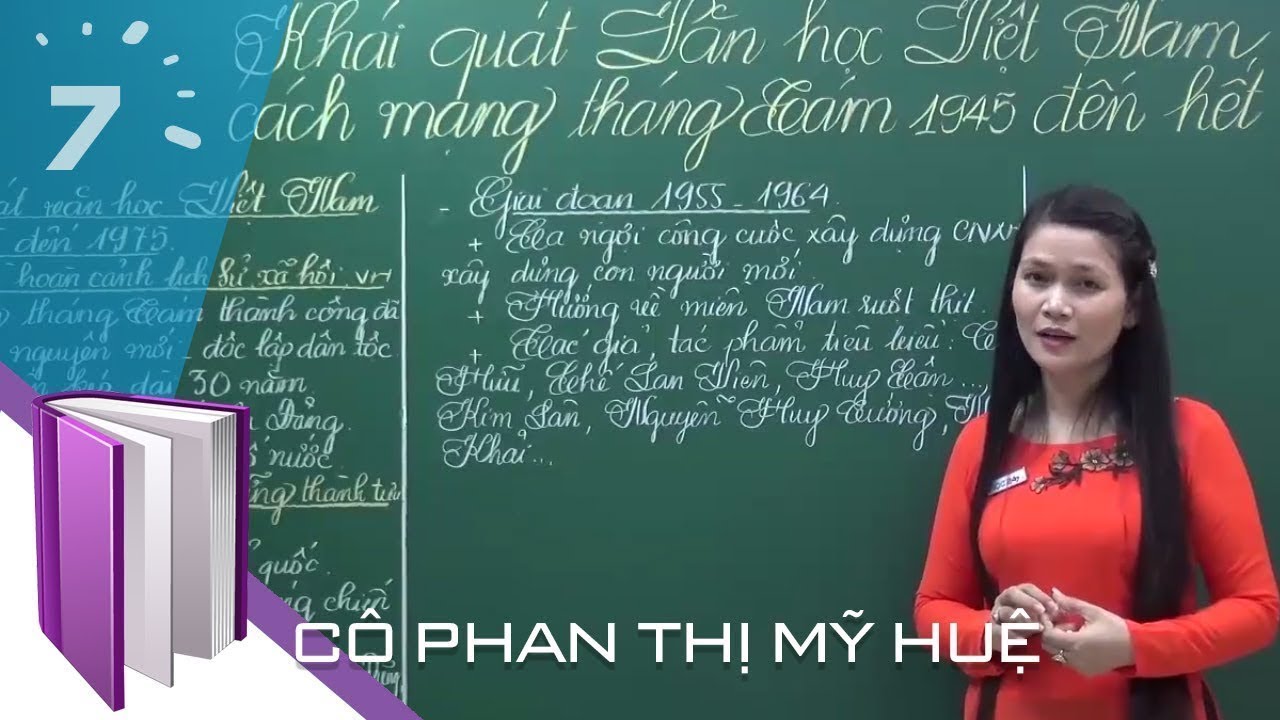 7
Khái quát Văn học Việt Nam
cách mạng tháng Tám 1945 đến hết
văn học Việt Nam
đến 1975.
hoàn cảnh lịch sử xã hội VH
tháng Tám thành công đã
nguyên mới - độc lập dân tộc
kéo dài 30 năm
Đảng.
nước.
thành tựu
quốc.
chiến
- Giai đoạn 1955 - 1964.
+ Ca ngợi công cuộc xây dựng CNXH
xây dựng con người mới.
+ Hướng về miền Nam ruột thịt.
+ Các giả, tác phẩm tiêu biểu:
Hữu, Chế Lan Viên, Huy Cận...,
Kim Lân, Nguyễn Huy Tưởng,
Khải...
CÔ PHAN THỊ MỸ HUỆ